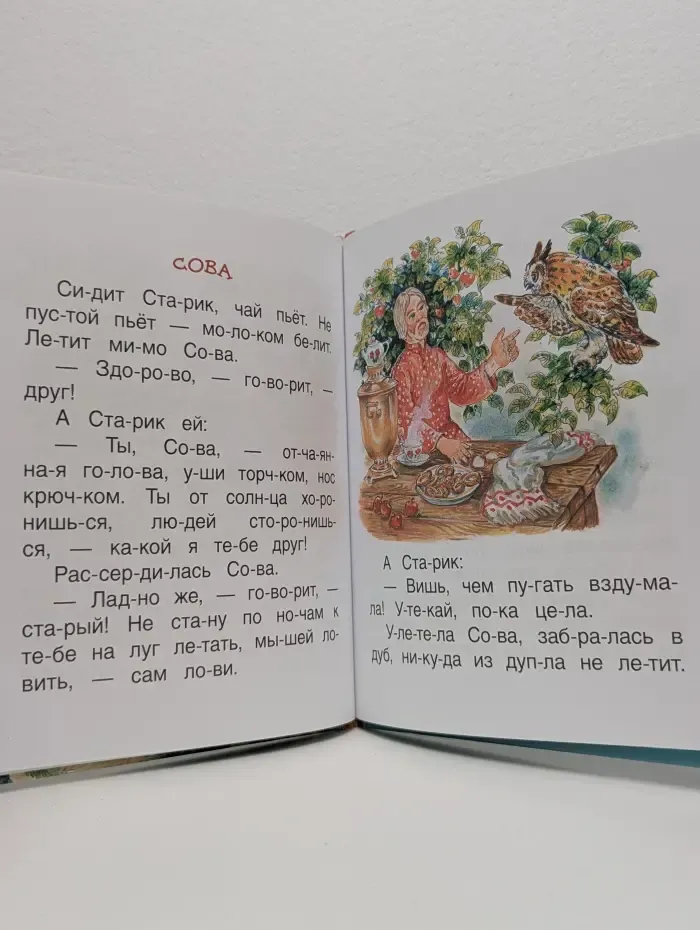 СОВА
Си-дит Ста-рик, чай пьёт. Не
пус-той пьёт — мо-ло-ком бе-лит.
Ле-тит ми-мо Со-ва.
— Здо-ро-во, — го-во-рит, —
друг!
А Ста-рик ей:
— Ты, Со-ва, — от-ча-ян-
на-я го-ло-ва, у-ши торч-ком, нос
крюч-ком. Ты от солн-ца хо-ро-
нишь-ся, лю-дей сто-ро-нишь-
ся, — ка-кой я те-бе друг!
Рас-сер-ди-лась Со-ва.
— Лад-но же, — го-во-рит, —
ста-рый! Не ста-ну по но-чам к
те-бе на луг ле-тать, мы-шей ло-
вить, — сам ло-ви.
А Ста-рик:
— Вишь, чем пу-гать взду-ма-
ла! У-те-кай, по-ка це-ла.
У-ле-те-ла Со-ва, заб-ра-лась в
дуб, ни-ку-да из дуп-ла не ле-тит.